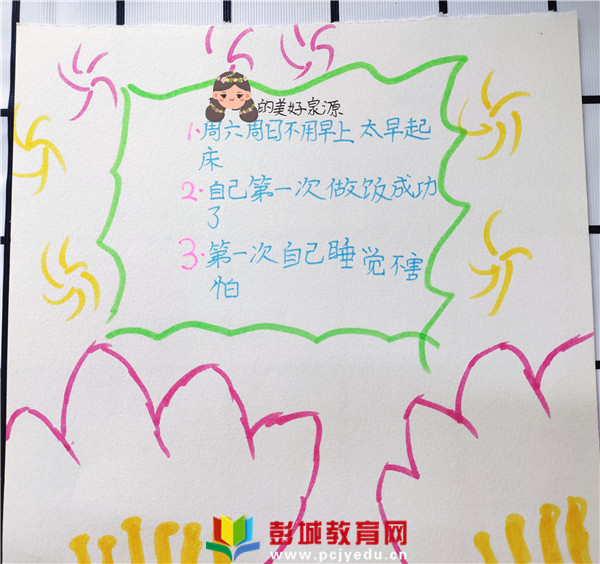 的美好家源
1.周六周日不用早上太早起
床
2.自己第一次做饭成功
了
3.第一次自己睡觉不害
怕
彭城教育网
www.pcjyedu.cn